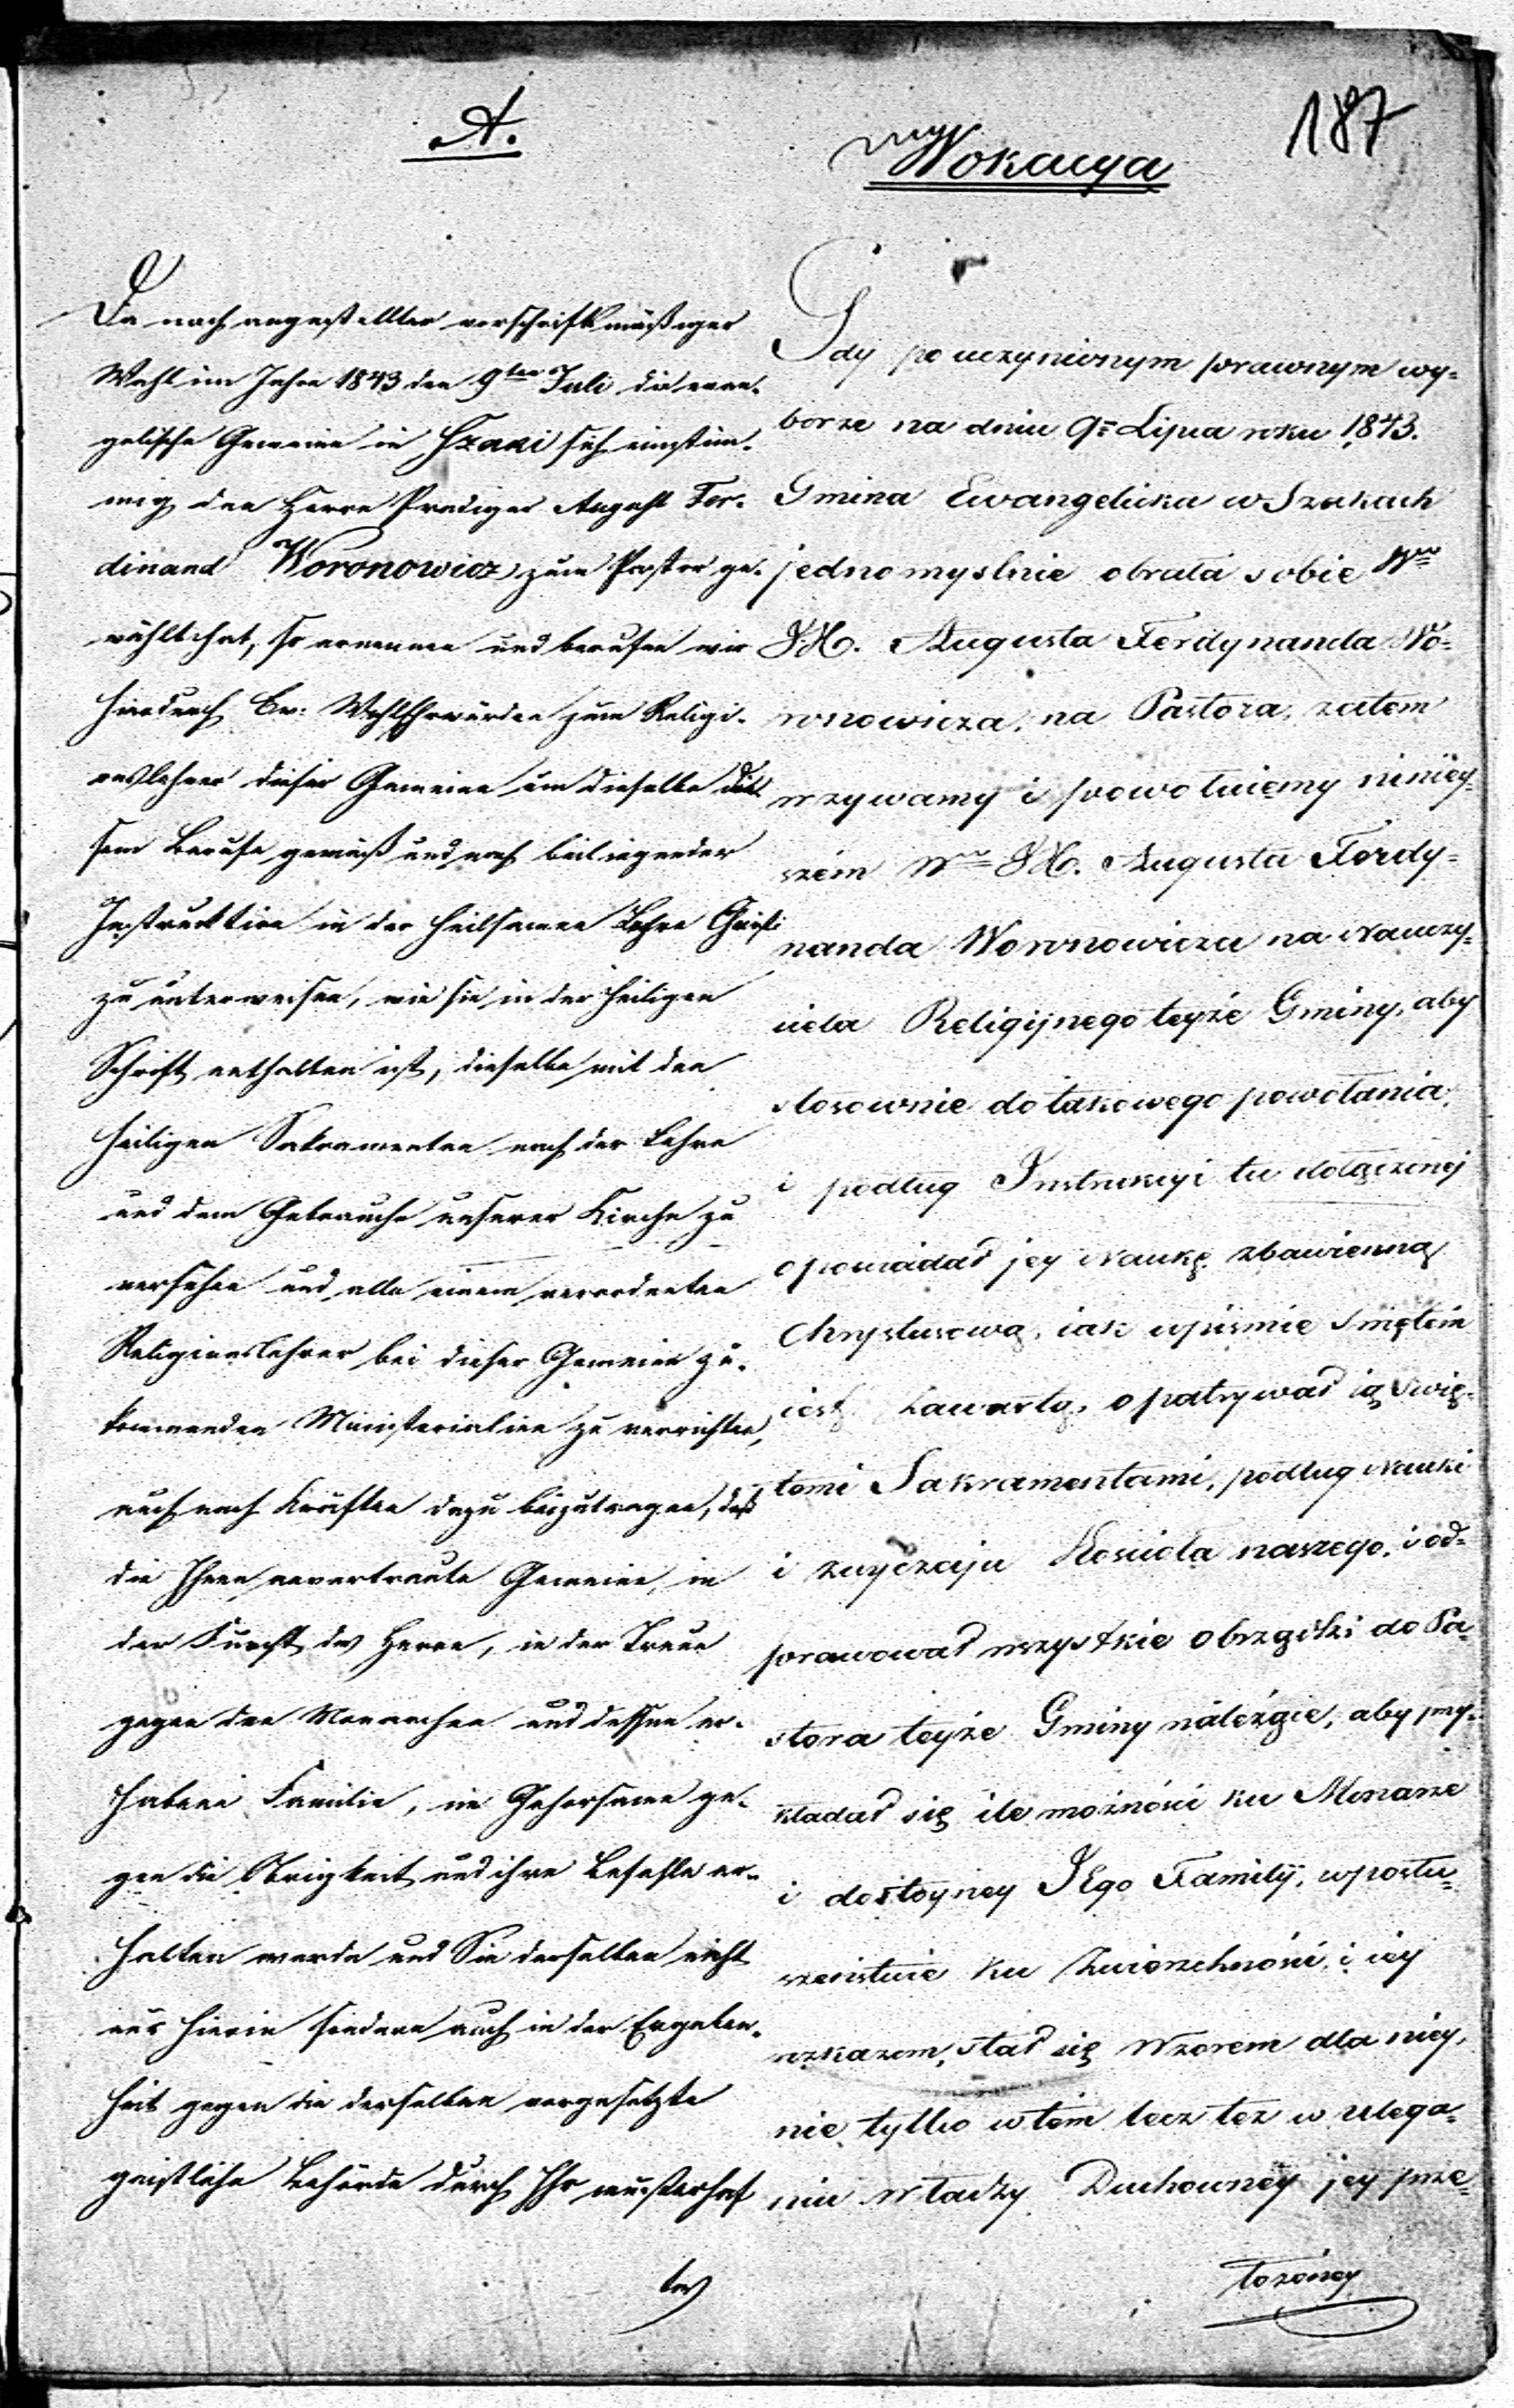 187
A.
Da nach angestellter vorschriftsmäßiger
Wahl im Jahre 1843 den 9ten Juli die evan-
gelische Gemeine in Szaki sich einstim-
mig den Herrn Prediger August Fer-
dinand Woronowicz zum Pastor ge-
wählt hat, so ernennen und berufen wir
hierdurch Ew: Wohlehrwürden zum Religi-
onslehrer dieser Gemeine um dieselbe die-
sem Berufe gemäß und nach beiliegender
Instrucktion in der heilsamen Lehre Christi
zu unterweisen, wie sie in der heiligen
Schrift enthalten ist, dieselbe mit den
heiligen Sakramenten nach der Lehre
und dem Gebrauche unserer Kirche zu
versehen und alle einem verordneten
Religionslehrer bei dieser Gemeine zu-
kommenden Ministerialien zu verrichten,
auch nach Kräften dazu beizutragen, daß
die Ihnen anvertraute Gemeine, in
der Furcht des Herrn, in der Treue
gegen den Monarchen und dessen er-
habene Familie, im Gehorsame ge-
gen die Obrigkeit und ihre Befehle er-
halten werde und Sie derselben nicht
nur hierin sondern auch in der Ergeben-
heit gegen die derselben vorgesetzte
geistliche Behörde durch Ihr musterhaf
tes
Wokacya
Gdy po uczynionym prawnym wy-
borze na dniu 9o Lipca roku 1843.
Gmina Ewangelicka w Szakach
jednomyslnie obrała sobie Wo
JX. Augusta Ferdynanda Wo-
ronowicza, na Pastora, zatem
wzywamy i powołuiemy niniey-
szém Wo JX. Augusta Ferdy-
nanda Woronowicza na Nauczy-
ciela Religijnego teyże Gminy, aby
stosownie do takowego powołania,
i podług Instrukcyi tu dołączonej
opowiadał jey Naukę zbawienną
Chrystusową, iak w piśmie Swiętem
iest zawartą, opatrywał ią Swię-
temi Sakramentami, podług Nauki
i zwyczaju Kościoła naszego, i od-
prawował wszystkie obrządki do Pa-
stora teyże Gminy należące, aby przy-
kładał się ile możności ku Monarsze
i dostoyney JEgo Familij, w posłu-
szeństwie ku Zwierzchności i iey
rozkazom, stał się Wzorem dla niey,
nie tylko w tem lecz też w ulega-
niu Władzy Duchowney jey prze-
łożoney